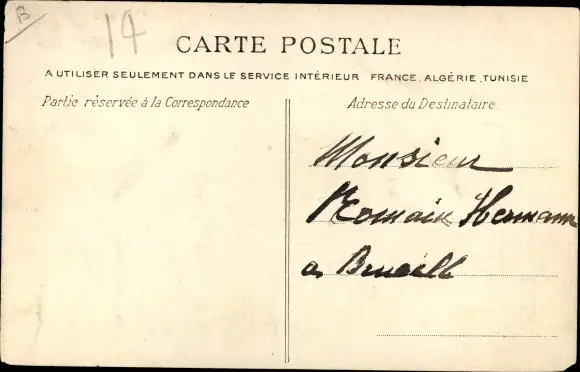 B
14
CARTE POSTALE
A UTILISER SEULEMENT DANS LE SERVICE INTÉRIEUR FRANCE, ALGÉRIE, TUNISIE
Partie réservée à la Correspondance
Adresse du Destinataire
Monsieur
Romain Hermann
a